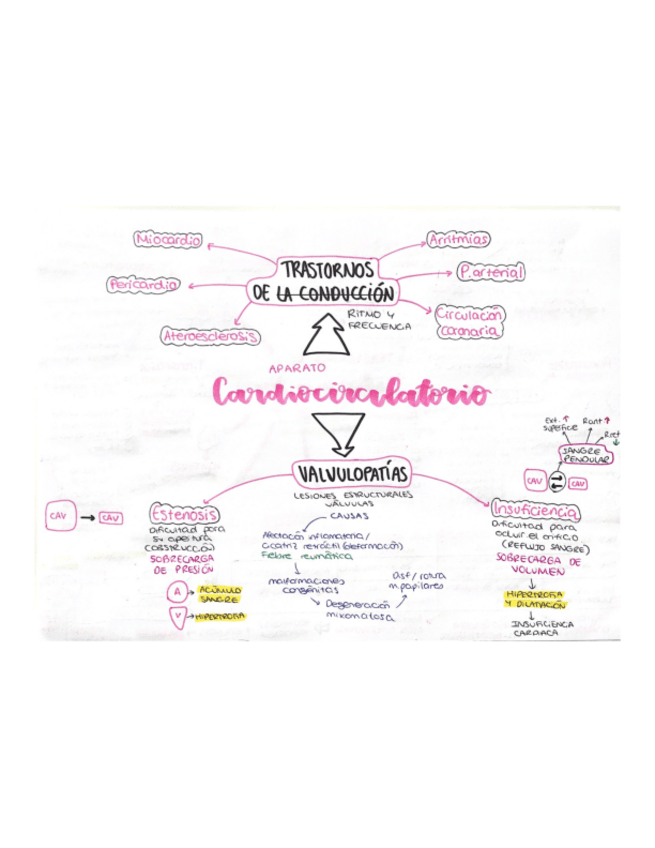 Miocardio
Pericardio
Ateroesclerosis
TRASTORNOS
DE LA CONDUCCIÓN
RITMO Y
FRECUENCIA
Arritmias
P. arterial
Circulación
coronaria
APARATO
Cardiocirculatorio
VALVULOPATÍAS
LESIONES ESTRUCTURALES
VÁLVULAS
CAUSAS
Afectación inflamatoria/
cicatriz retráctil (deformación)
Fiebre reumática
malformaciones
congénitas
Degeneración
mixomatosa
Disf/rotura
m.papilares
CAV → CAV
Estenosis
Dificultad para
su apertura
(OBSTRUCCIÓN)
SOBRECARGA
DE PRESIÓN
A → ACÚMULO
SANGRE
V → HIPERTROFIA
Ext. ↑
superficie
Rant ↑
Rret ↓
SANGRE
PENDULAR
CAV
CAV
Insuficiencia
Dificultad para
ocluir el orificio
(REFLUJO SANGRE)
SOBRECARGA DE
VOLUMEN
HIPERTROFIA
Y DILATACIÓN
INSUFICIENCIA
CARDIACA